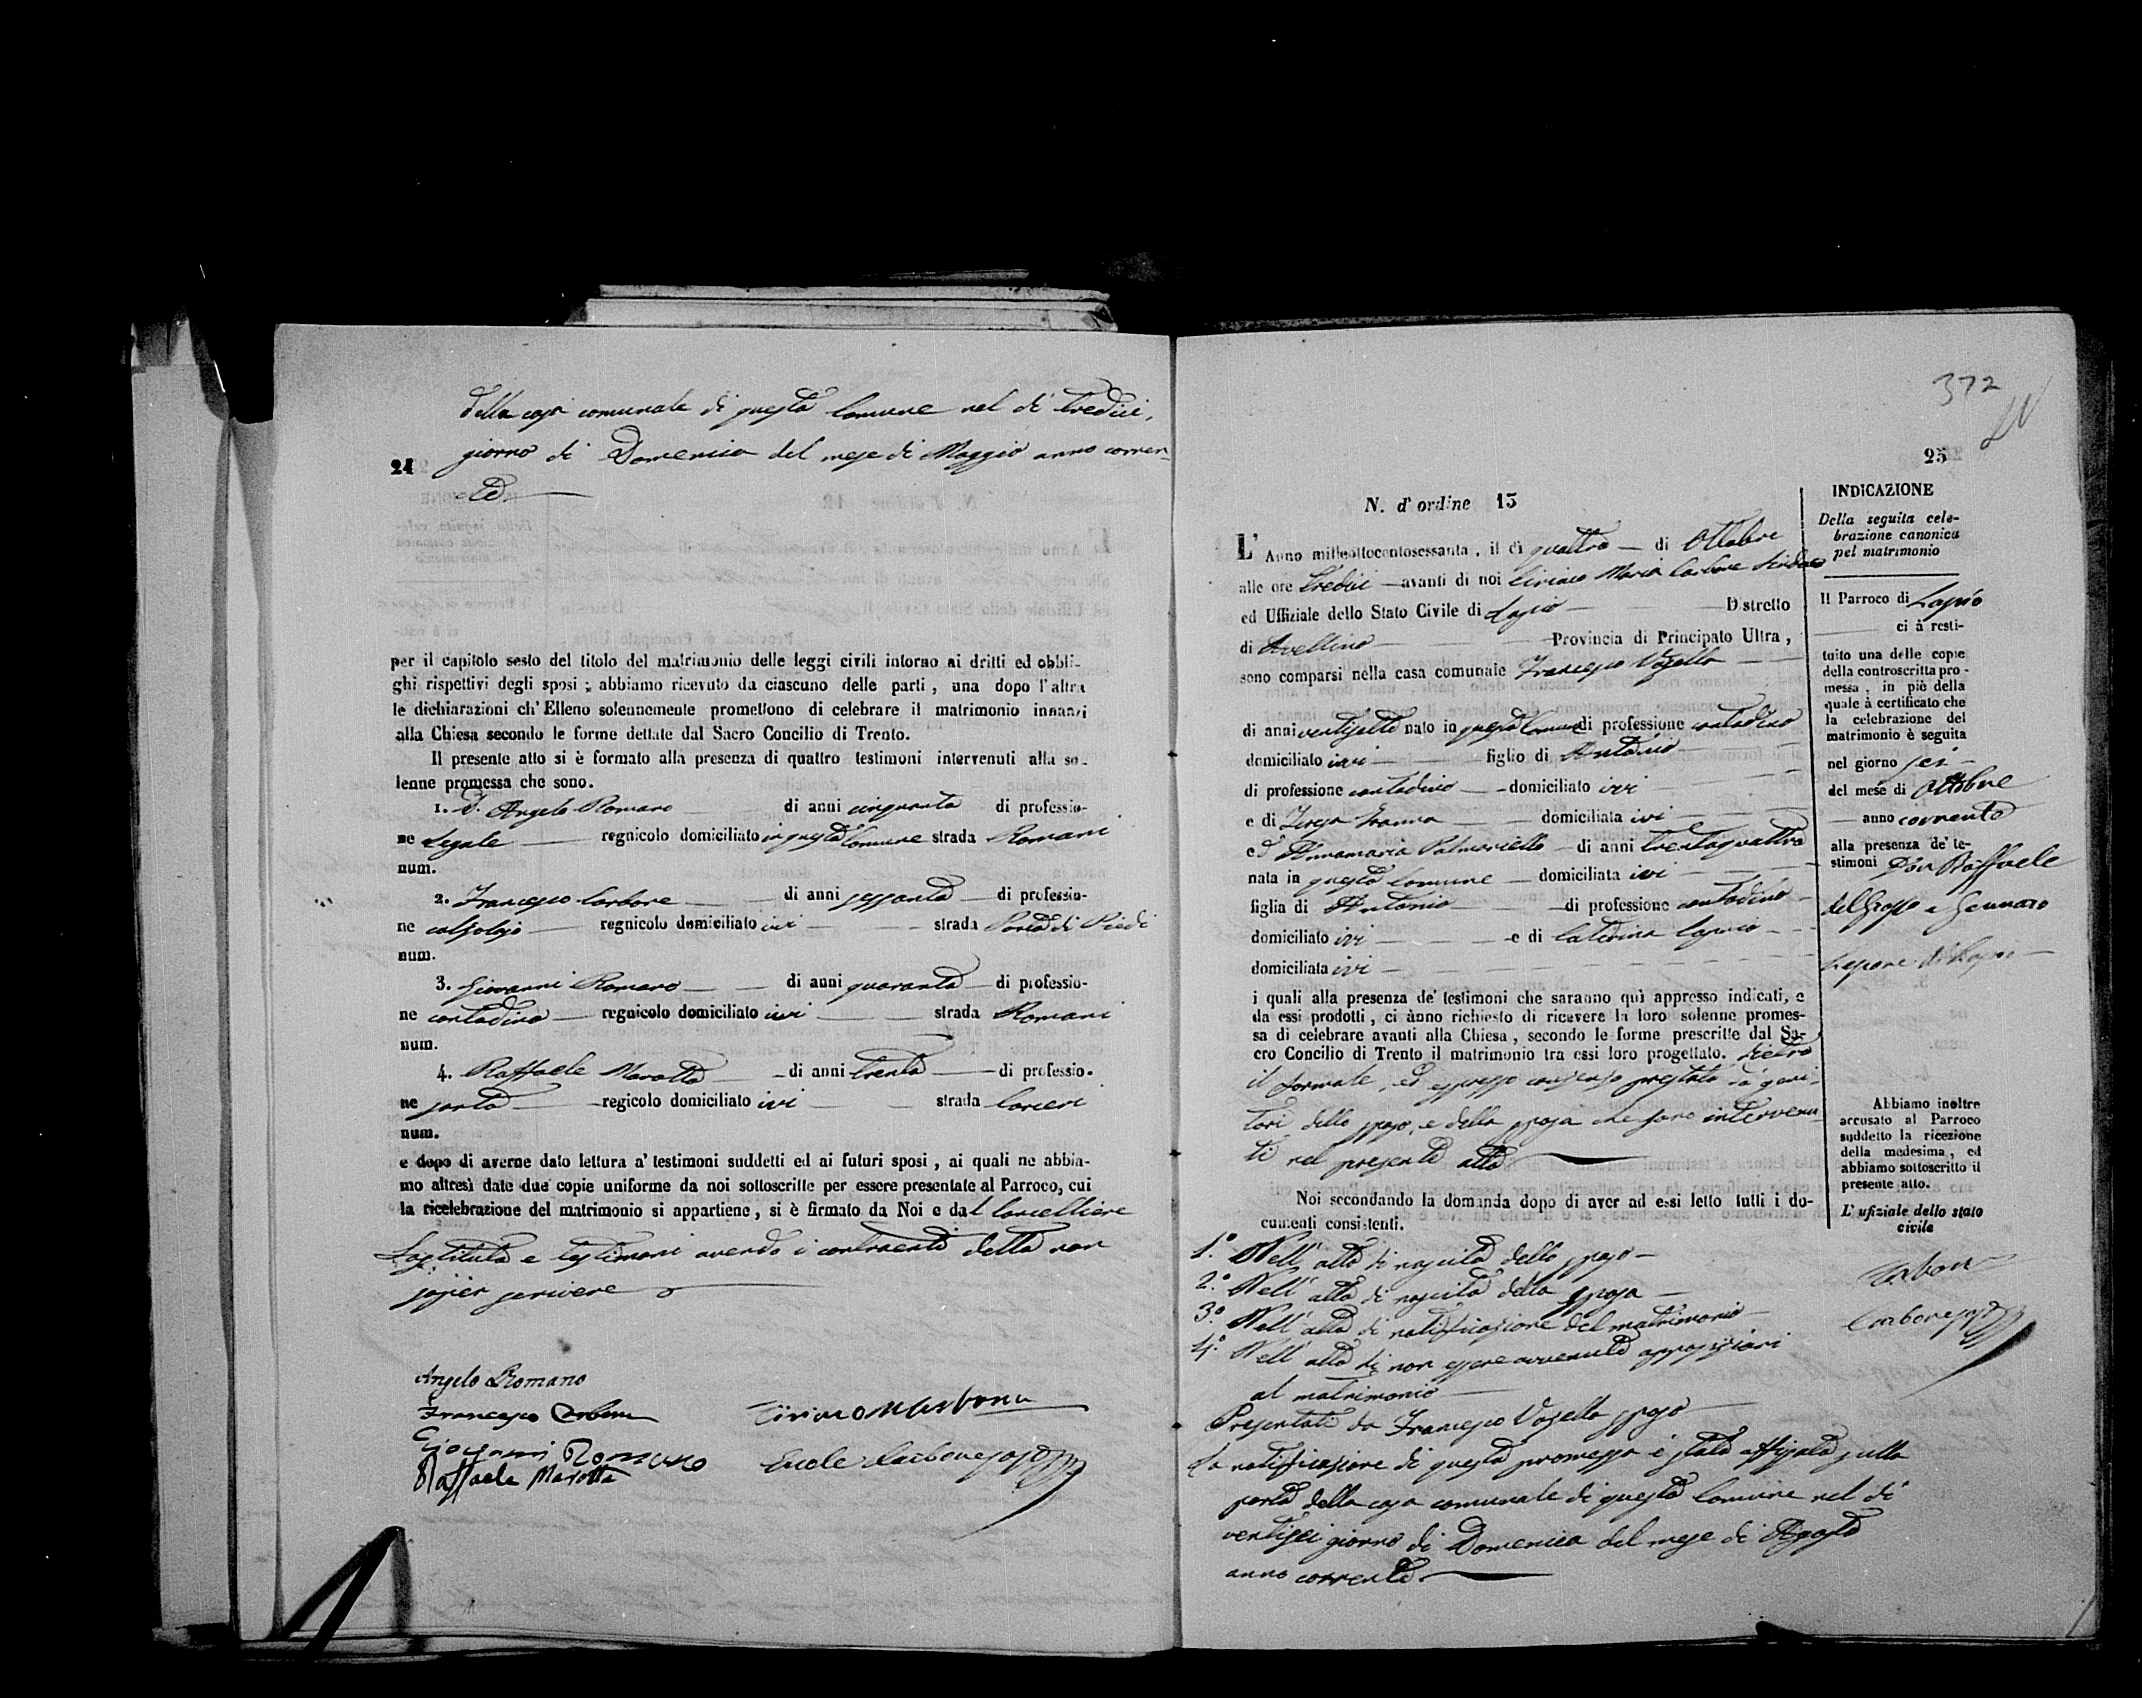 della casa comunale di questo Comune nel dì tredici,
giorno di Domenica del mese di Maggio anno corren-
te.
24
per il capitolo sesto del titolo del matrimonio delle leggi civili intorno ai dritti ed obbli-
ghi rispettivi degli sposi ; abbiamo ricevuto da ciascuno delle parti , una dopo l'altra
le dichiarazioni ch'Elleno solennemente promettono di celebrare il matrimonio innanzi
alla Chiesa secondo le forme dettate dal Sacro Concilio di Trento.
Il presente atto si è formato alla presenza di quattro testimoni intervenuti alla so-
lenne promessa che sono.
1. D. Angelo Romano di anni cinquanta di professio-
ne Legale regnicolo domiciliato in questo Comune strada Romani
num.
2. Francesco Carbone di anni sessanta di professio-
ne calzolajo regnicolo domiciliato ivi strada Porta di Piedi
num.
3. Giovanni Romano di anni quaranta di professio-
ne contadino regnicolo domiciliato ivi strada Romani
num.
4. Raffaele Marotta di anni trenta di professio.
ne sarto regicolo domiciliato ivi strada
num.
e dopo di averne dato lettura a' testimoni suddetti ed ai futuri sposi , ai quali ne abbia-
mo altresì date due copie uniforme da noi sottoscritte per essere presentate al Parroco, cui
la ricelebrazione del matrimonio si appartiene , si è firmato da Noi e dal Cancelliere
Sostituto e testimoni avendo i contraenti detto non
saper scrivere
Angelo Romano
Francesco Carbone
Giovanni Romano
Raffaele Marotta
Ciriaco M Carbone
Ercole Carbone sosto
372
25
N. d'ordine 13
L'Anno milleottocentosessanta , il dì quattro di Ottobre
alle ore tredici avanti di noi Ciriaco Maria Carbone Sindaco
ed Uffiziale dello Stato Civile di Lapio Distretto
di Avellino Provincia di Principato Ultra ,
sono comparsi nella casa comunale Francesco Vozella
di anni ventisette nato in questo Comune di professione contadino
domiciliato ivi figlio di Antonio
di professione contadino domiciliato ivi
e di Teresa Iranna domiciliata ivi
ed Annamaria Palmariello di anni trentaquattro
nata in questo Comune domiciliata ivi
figlia di Antonio di professione contadino
domiciliato ivi e di Caterina Caprio
domiciliata ivi
i quali alla presenza de' testimoni che saranno quì appresso indicati, e
da essi prodotti , ci ànno richiesto di ricevere la loro solenne promes-
sa di celebrare avanti alla Chiesa , secondo le forme prescritte dal Sa-
cro Concilio di Trento il matrimonio tra essi loro progettato. Dietro
il formale, ed espresso consenso prestato da' geni-
tori dello sposo, e della sposa che sono intervenu-
ti nel presente atto
Noi secondando la domanda dopo di aver ad essi letto tutti i do-
cumenti consistenti.
1.º Nell'atto di nascita dello sposo
2.º Nell'atto di nascita della sposa
3.º Nell'atto di notificazione del matrimonio
4.º Nell'atto di non essere avvenute opposizioni
al matrimonio
Presentati da Francesco Vozella sposo
La notificazione di questa promessa è stata affissata sulla
porta della casa comunale di questo Comune nel dì
ventisei giorno di Domenica del mese di Agosto
anno corrente
INDICAZIONE
Della seguita cele-
brazione canonica
pel matrimonio
Il Parroco di Lapio
ci à resti-
tuito una delle copie
della controscritta pro-
messa , in piè della
quale à certificato che
la celebrazione del
matrimonio è seguita
nel giorno sei
del mese di Ottobre
anno corrente
alla presenza de' te-
stimoni Don Raffaele
del Grosso e Gennaro
Lepore di Lapio
Abbiamo inoltre
accusato al Parroco
suddetto la ricezione
della medesima, ed
abbiamo sottoscritto il
presente atto.
L'ufiziale dello stato
civile
Carbone
Carbone sosto